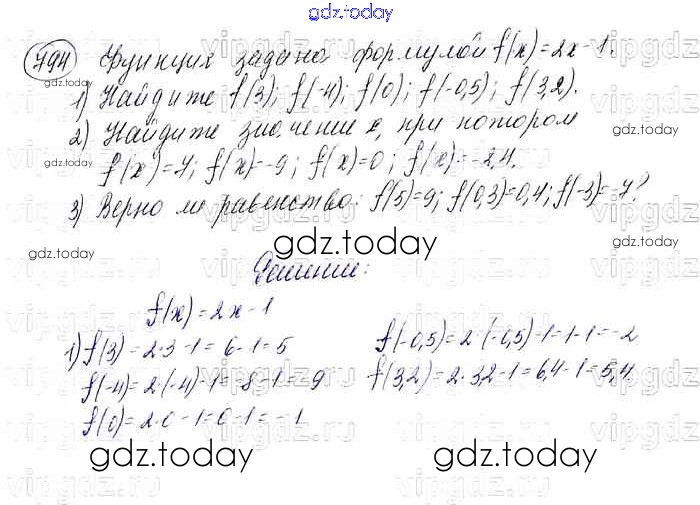 gdz.today
794 Функция задана формулой f(x)=2x-1.
1) Найдите f(3); f(-4); f(0); f(-0,5); f(3,2).
2) Найдите значение x, при котором
f(x)=7; f(x)=-9; f(x)=0; f(x)=-2,4.
3) Верно ли равенство: f(5)=9; f(0,3)=0,4; f(-3)=-7?
Решение:
f(x)=2x-1
1) f(3)=2·3-1=6-1=5
f(-4)=2·(-4)-1=-8-1=-9
f(0)=2·0-1=0-1=-1
f(-0,5)=2·(-0,5)-1=-1-1=-2
f(3,2)=2·3,2-1=6,4-1=5,4
gdz.today
gdz.today
gdz.today
gdz.today
gdz.today
gdz.today
gdz.today
gdz.today